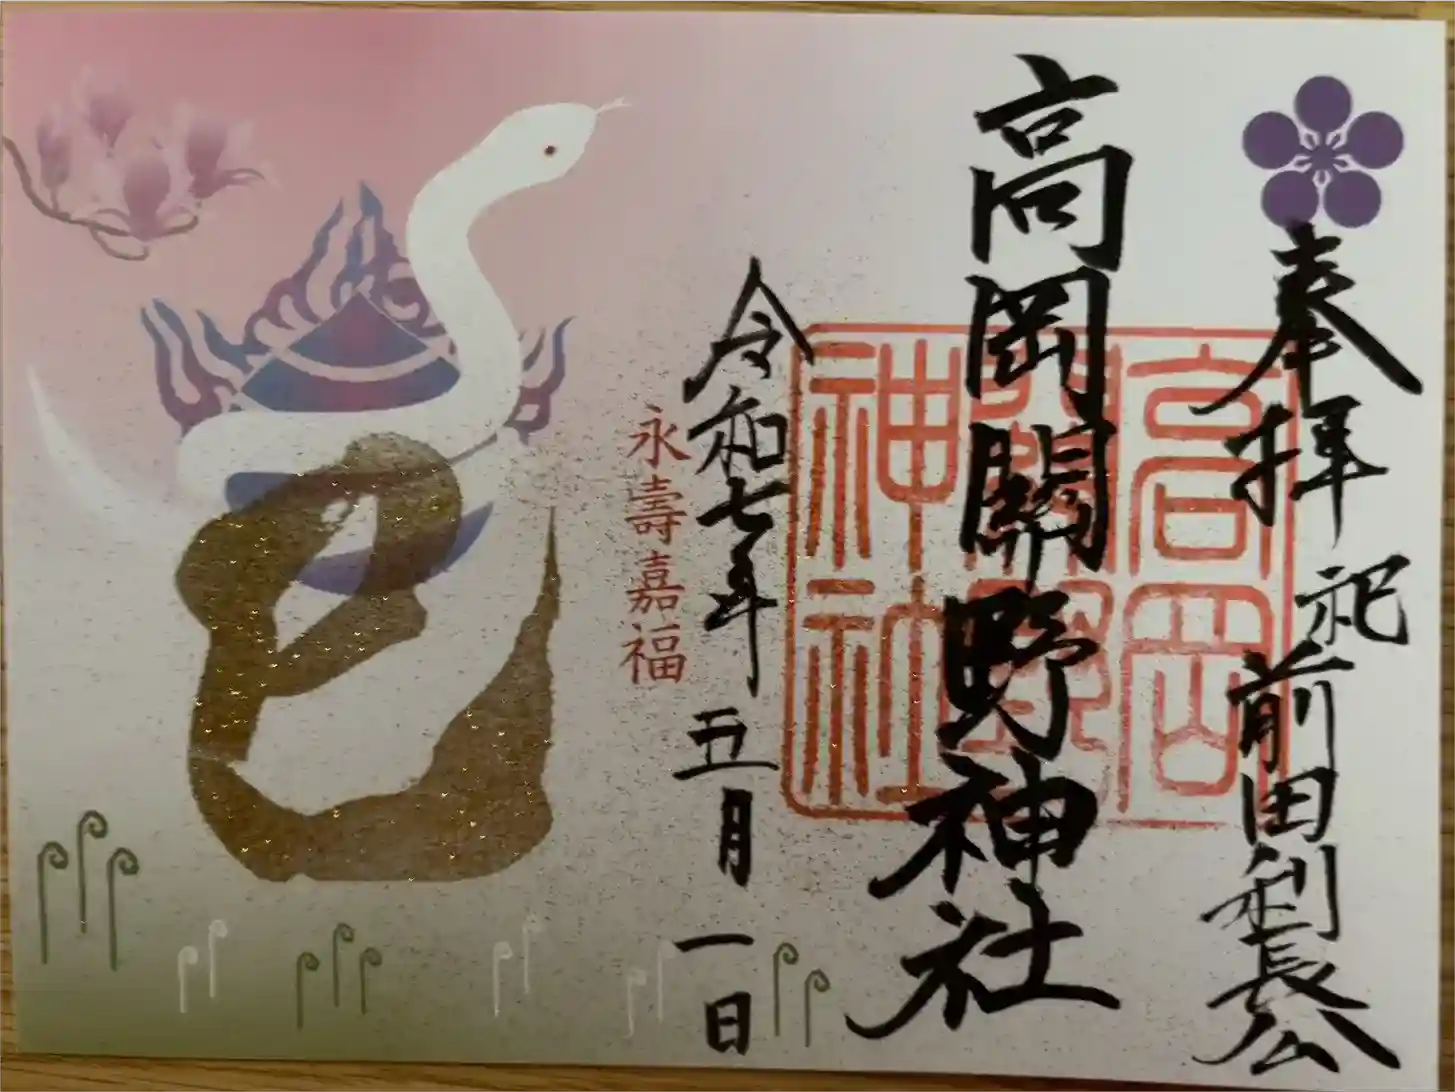 奉拝 祀前田利長公
高岡關野神社
高岡
關野
神社
令和七年五月一日
永壽嘉福